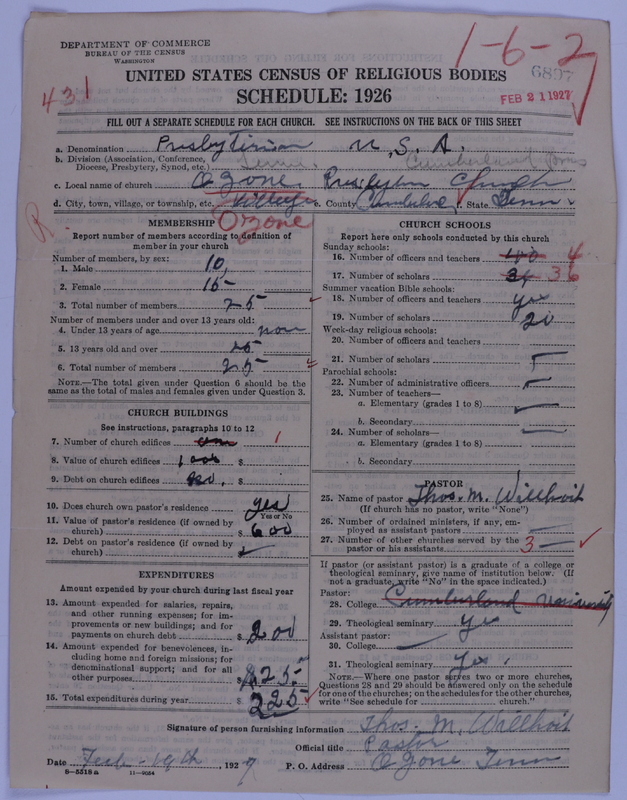 DEPARTMENT OF COMMERCE
BUREAU OF THE CENSUS
WASHINGTON
1-6-2
6897
431
FEB 21 1927
UNITED STATES CENSUS OF RELIGIOUS BODIES
SCHEDULE: 1926
FILL OUT A SEPARATE SCHEDULE FOR EACH CHURCH. SEE INSTRUCTIONS ON THE BACK OF THIS SHEET
a. Denomination Presbyterian U. S. A.
b. Division (Association, Conference, Diocese, Presbytery, Synod, etc.) Tenn. Cumberland
c. Local name of church Ozone Presbyterian Church
d. City, town, village, or township, etc. Village e. County Cumberland f. State Tenn.
R. Ozone
MEMBERSHIP
Report number of members according to definition of
member in your church
Number of members, by sex:
1. Male 10
2. Female 15
3. Total number of members 25
Number of members under and over 13 years old:
4. Under 13 years of age non
5. 13 years old and over 25
6. Total number of members 25
NOTE.—The total given under Question 6 should be the
same as the total of males and females given under Question 3.
CHURCH BUILDINGS
See instructions, paragraphs 10 to 12
7. Number of church edifices 1
8. Value of church edifices $ 1000
9. Debt on church edifices $
10. Does church own pastor's residence yes
Yes or No
11. Value of pastor's residence (if owned by
church) $ 600
12. Debt on pastor's residence (if owned by
church)
EXPENDITURES
Amount expended by your church during last fiscal year
13. Amount expended for salaries, repairs,
and other running expenses; for im-
provements or new buildings; and for
payments on church debt $ 200
14. Amount expended for benevolences, in-
cluding home and foreign missions; for
denominational support; and for all
other purposes $ 25
15. Total expenditures during year $ 225
CHURCH SCHOOLS
Report here only schools conducted by this church
Sunday schools:
16. Number of officers and teachers 40 4
17. Number of scholars 36 36
Summer vacation Bible schools:
18. Number of officers and teachers yes
19. Number of scholars 20
Week-day religious schools:
20. Number of officers and teachers
21. Number of scholars
Parochial schools:
22. Number of administrative officers
23. Number of teachers—
a. Elementary (grades 1 to 8)
b. Secondary
24. Number of scholars—
a. Elementary (grades 1 to 8)
b. Secondary
PASTOR
25. Name of pastor Thos. M. Willhoit
(If church has no pastor, write "None")
26. Number of ordained ministers, if any, em-
ployed as assistant pastors
27. Number of other churches served by the
pastor or his assistants 3
If pastor (or assistant pastor) is a graduate of a college or
theological seminary, give name of institution below. (If
not a graduate, write "No" in the space indicated.)
Pastor:
28. College Cumberland University
29. Theological seminary yes
Assistant pastor:
30. College
31. Theological seminary yes
NOTE.—Where one pastor serves two or more churches,
Questions 28 and 29 should be answered only on the schedule
for one of the churches; on the schedules for the other churches,
write "See schedule for church."
Signature of person furnishing information Thos. M. Willhoit
Official title Pastor
Date Feb 19th, 1927 P. O. Address Ozone Tenn
8-5518 a 11-9054